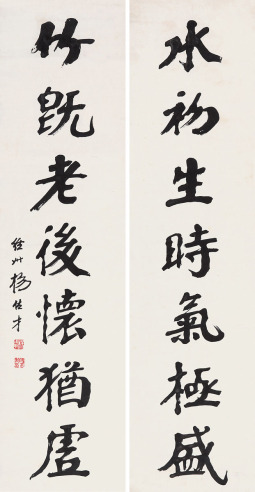 水初生時氣極盛
竹旣老後懷猶虛
徐州楊才